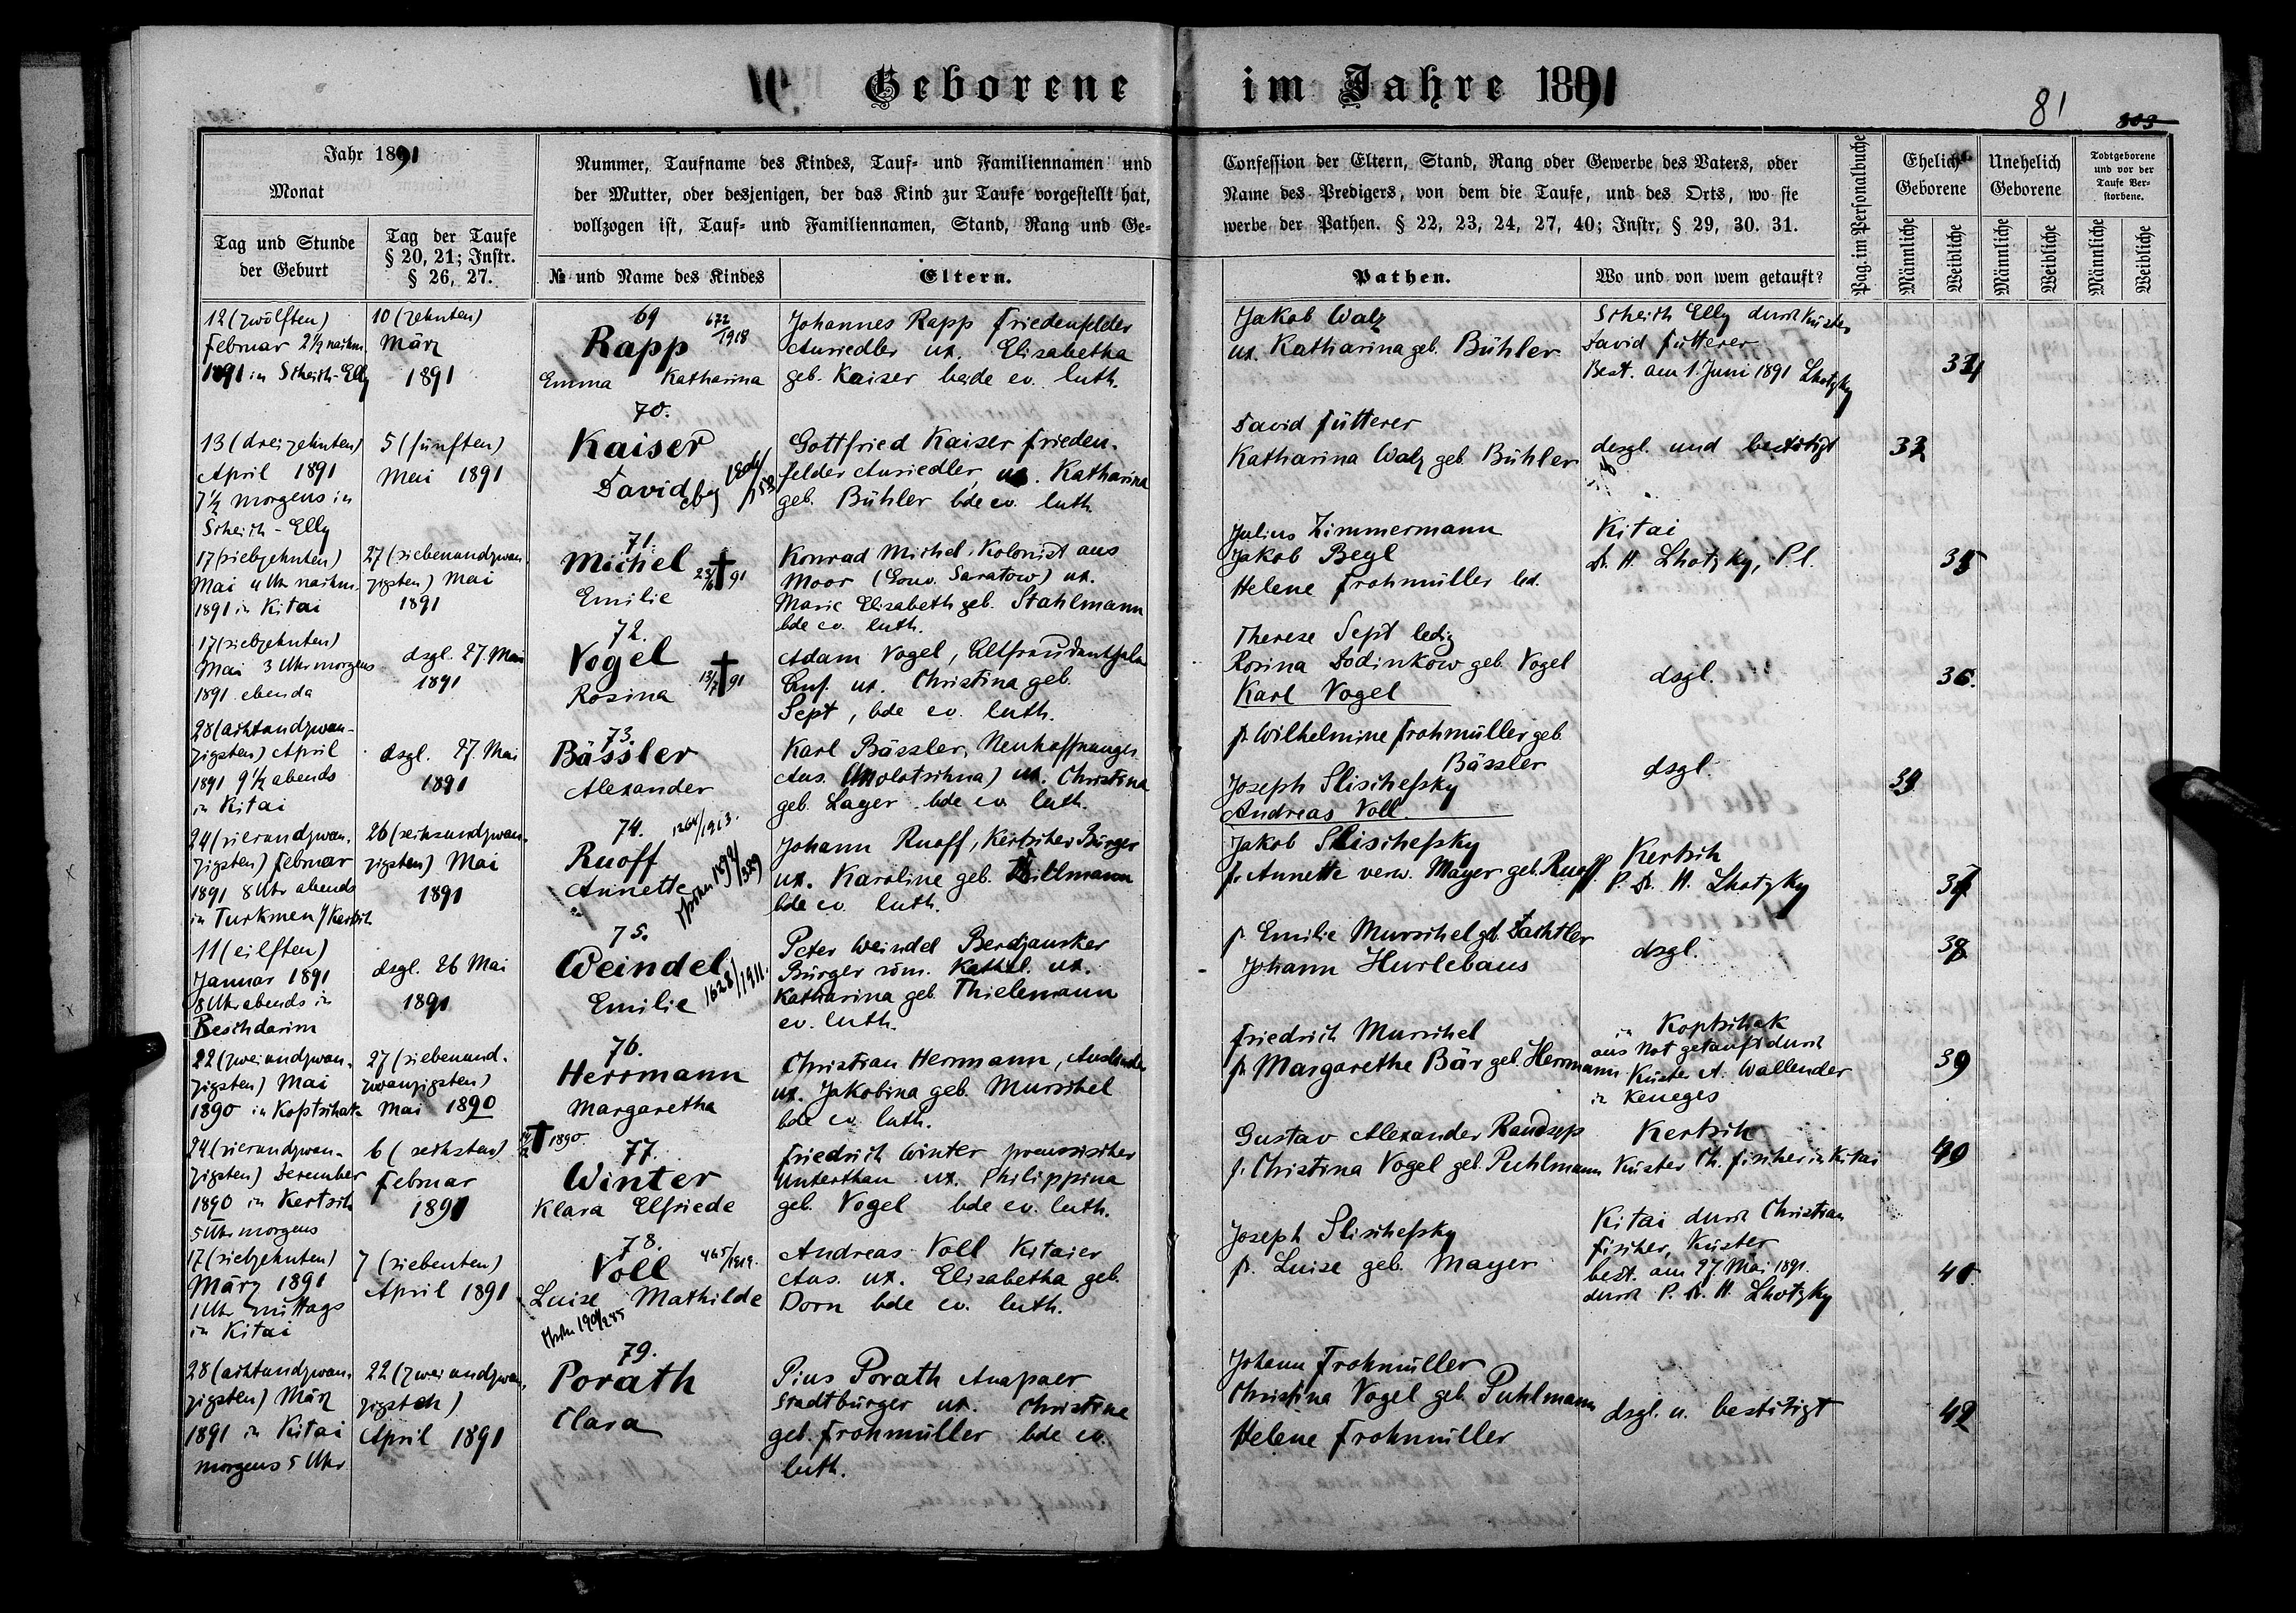 Geborene im Jahre 1891
81
803
Jahr 1891
Monat
Tag und Stunde
der Geburt
Tag der Taufe
§ 20, 21; Instr.
§ 26, 27.
Nummer, Taufname des Kindes, Tauf- und Familiennamen und
der Mutter, oder desjenigen, der das Kind zur Taufe vorgestellt hat,
vollzogen ist, Tauf- und Familiennamen, Stand, Rang und Ge-
№ und Name des Kindes
Eltern.
Confession der Eltern, Stand, Rang oder Gewerbe des Vaters, oder
Name des Predigers, von dem die Taufe, und des Orts, wo sie
werbe der Pathen. § 22, 23, 24, 27, 40; Instr. § 29, 30. 31.
Pathen.
Wo und von wem getauft?
Pag. im Personalbuche
Ehelich
Geborene
Unehelich
Geborene
Todtgeborene
und vor der
Taufe Ver-
storbene.
Männliche
Weibliche
Männliche
Weibliche
Männliche
Weibliche
12 (zwölften)
Februar 2½ nachm.
1891 in Scheich-Elly
10 (zehnten)
März
1891
69
672/1918
Rapp
Emma Katharina
Johannes Rapp Friedenfelder
Ansiedler ux. Elisabetha
geb. Kaiser beide ev. luth.
Jakob Walz
ux. Katharina geb. Bühler
Scheich Elly durch Küster
David Fütterer
Best. am 1. Juni 1891 Lhotzky
13 (dreizehnten)
April 1891
7½ morgens in
Scheich-Elly
5 (fünften)
Mai 1891
70.
Kaiser
David
Gottfried Kaiser Frieden-
felder Ansiedler, ux. Katharina
geb. Bühler bde ev. luth.
David Fütterer
Katharina Walz geb. Bühler
desgl. und bestätigt
17 (siebzehnten)
Mai 4 Uhr nachm.
1891 in Kitai
27 (siebenundzwan-
zigsten) Mai
1891
71.
Michel
23/6 † 91
Emilie
Konrad Michel, Kolonist aus
Moor (Gouv. Saratow) ux.
Marie Elisabeth geb. Stahlmann
bde ev. luth.
Julius Zimmermann
Jakob Beyl
Helene Frohmüller led.
Kitai
Dr. H. Lhotzky, P.l.
17 (siebzehnten)
Mai 3 Uhr morgens
1891 ebenda
dsgl. 27. Mai
1891
72.
Vogel
13/7 † 91
Rosina
Adam Vogel, Altfreudenthaler
Ans. ux. Christina geb.
Sept, bde ev. luth.
Therese Sept ledig
Rosina Dodinkow geb. Vogel
Karl Vogel
dsgl.
36.
28 (achtundzwan-
zigsten) April
1891 9½ abends
in Kitai
dsgl. 27. Mai
1891
73.
Bässler
Alexander
Karl Bässler, Neuhoffnunger
Ans. (Molotschna) ux. Christina
geb. Lager bde ev. luth.
fr. Wilhelmine Frohmüller geb.
Bässler
Joseph Slischefsky
Andreas Voll
dsgl.
24 (vierundzwan-
zigsten) Februar
1891 8 Uhr abends
in Turkmen / Kertsch
26 (sechsundzwan-
zigsten) Mai
1891
74.
1264/1913.
Ruoff
Annette
Johann Ruoff, Kertscher Bürger
ux. Karoline geb. Dillmann
bde ev. luth.
Jakob Slischefsky
fr. Annette verw. Mayer geb. Ruoff
Kertsch
P. Dr. H. Lhotzky
11 (eilften)
Januar 1891
8 Uhr abends in
Beschdarim
dsgl. 26 Mai
1891
75.
Weindel
Emilie
1628/1911.
Peter Weindel Berdjansker
Bürger röm. Kathol. ux.
Katharina geb. Thielemann
ev. luth.
fr. Emilie Murschel geb. Dachtler
Johann Hurlebaus
dsgl.
22 (zweiundzwan-
zigsten) Mai
1890 in Koptschak
27 (siebenund-
zwanzigsten)
Mai 1890
76.
Herrmann
Margaretha
Christian Herrmann, Ausländer
ux. Jakobina geb. Murschel
bde ev. luth.
Friedrich Murschel
fr. Margarethe Bär geb. Herrmann
in Koptschak
aus Not getauft durch
Küster A. Wallender
in Keneges
39
24 (vierundzwan-
zigsten) Dezember
1890 in Kertsch
5 Uhr morgens
6 (sechsten)
Februar
1891
† 1890.
77.
Winter
Klara Elfriede
Friedrich Winter preussischer
Unterthan ux. Philippina
geb. Vogel bde ev. luth.
Gustav Alexander Raudsep
fr. Christina Vogel geb. Puhlmann
Kertsch
Küster Ch. Fischer in Kitai
17 (siebzehnten)
März 1891
1 Uhr mittags
in Kitai
7 (siebenten)
April 1891
78.
Voll
Luise Mathilde
Andreas Voll Kitaier
Ans. ux. Elisabetha geb.
Dorn bde ev. luth.
Joseph Slischefsky
fr. Luise geb. Mayer
Kitai durch Christian
Fischer, Küster
best. am 27. Mai 1891.
durch P. Dr. H. Lhotzky
28 (achtundzwan-
zigsten) März
1891 in Kitai
morgens 5 Uhr
22 (zweiundzwan-
zigsten)
April 1891
79.
Porath
Clara
Pius Porath Anapaer
Stadtbürger ux. Christine
geb. Frohmüller bde ev.
luth.
Johann Frohmüller
Christina Vogel geb. Puhlmann
Helene Frohmüller
dsgl. u. bestätigt
42